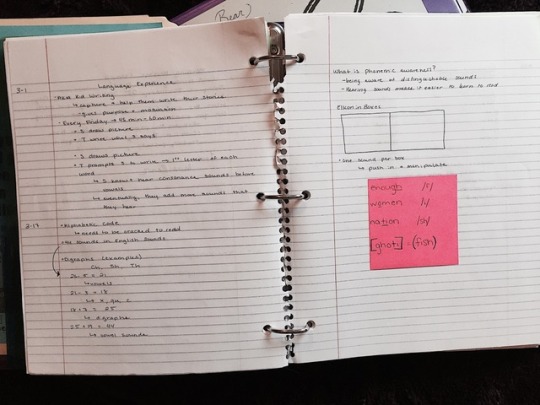 Bear)
3-1
Language Experience
- Next Kid Writing
↳ capture + help them write their stories
- gives purpose + motivation
- Every Friday → 45 min - 60 min
- S draw picture
- T write what S says
- S draws picture
- T prompts S to write → 1st letter of each word
↳ S hear consonance sounds before vowels
↳ eventually, they add more sounds that they hear
2-17
- Alphabetic code
↳ needs to be cracked to read
- 44 sounds in English
- Digraphs (examples)
Ch, Sh, Th
26 - 5 = 21
↳ vowels
21 - 3 = 18
↳ x, q, c
18 + 7 = 25
↳ digraphs
25 + 19 = 44
↳ vowel sounds
What is phonemic awareness?
- being aware of distinguishable sounds
- hearing sounds makes it easier to learn to read
Elkonin Boxes
- one sound per box
↳ push in + manipulate
enough /f/
women /i/
nation /sh/
[ghoti] = (fish)